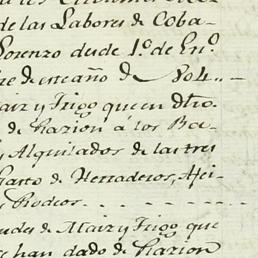 de las Labores de Coba-
Lorenzo desde 1.º de En.º
bre de ese año de 804.
Maiz y Trigo que en dho.
de Razion á los Ba-
y Alquilados de las tres
Gasto de Herraderos, Aei-
y Rodeos
udes de Maiz y Trigo que
se han dado de Razion